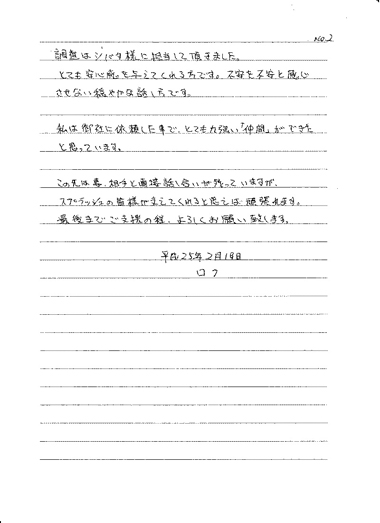 NO.2
調査はシバタ様に担当して頂きました。
とても安心感を与えてくれる方です。不安を不安と感じ
させない穏やかな話し方です。
私は御社に依頼した事で、とても力強い「仲間」ができた
と思っています。
この先は妻、相手と直接話し合いが残っていますが、
スプラッシュの皆様が支えてくれると思えば頑張れます。
最後までご支援の程、よろしくお願い致します。
平成25年2月18日